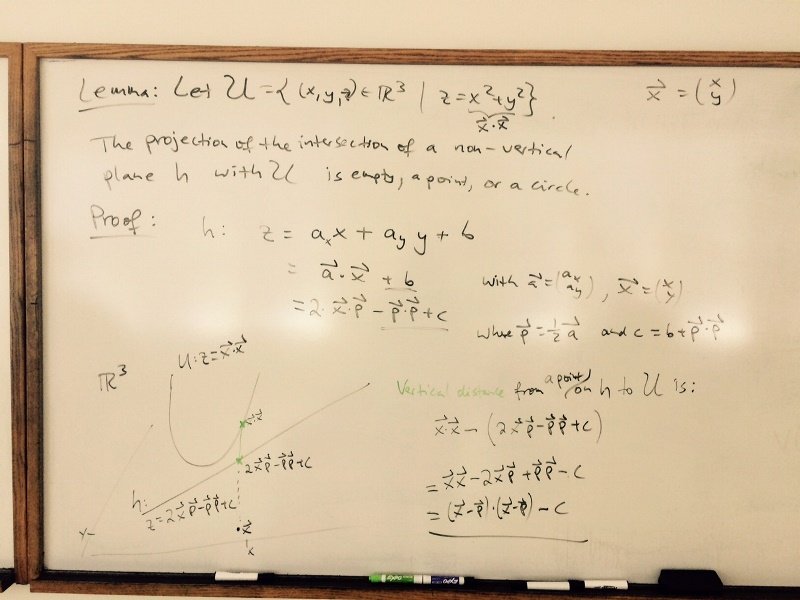 Lemma: Let U = { (x,y,z) ∈ ℝ³ | z = x² + y² }.
x⃗·x⃗
x⃗ = (x y)
The projection of the intersection of a non-vertical
plane h with U is empty, a point, or a circle.
Proof: h: z = aₓx + a_y y + b
= a⃗·x⃗ + b with a⃗ = (aₓ a_y), x⃗ = (x y)
= 2·x⃗·p⃗ - p⃗·p⃗ + c where p⃗ = ½a⃗ and c = b + p⃗·p⃗
U: z = x⃗·x⃗
ℝ³
x⃗·x⃗
2x⃗p⃗ - p⃗p⃗ + c
h:
z = 2x⃗p⃗ - p⃗p⃗ + c
x⃗
y
x
Vertical distance from a point on h to U is:
x⃗·x⃗ - (2x⃗p⃗ - p⃗p⃗ + c)
= x⃗x⃗ - 2x⃗p⃗ + p⃗p⃗ - c
= (x⃗-p⃗)·(x⃗-p⃗) - c
EXPO
EXPO